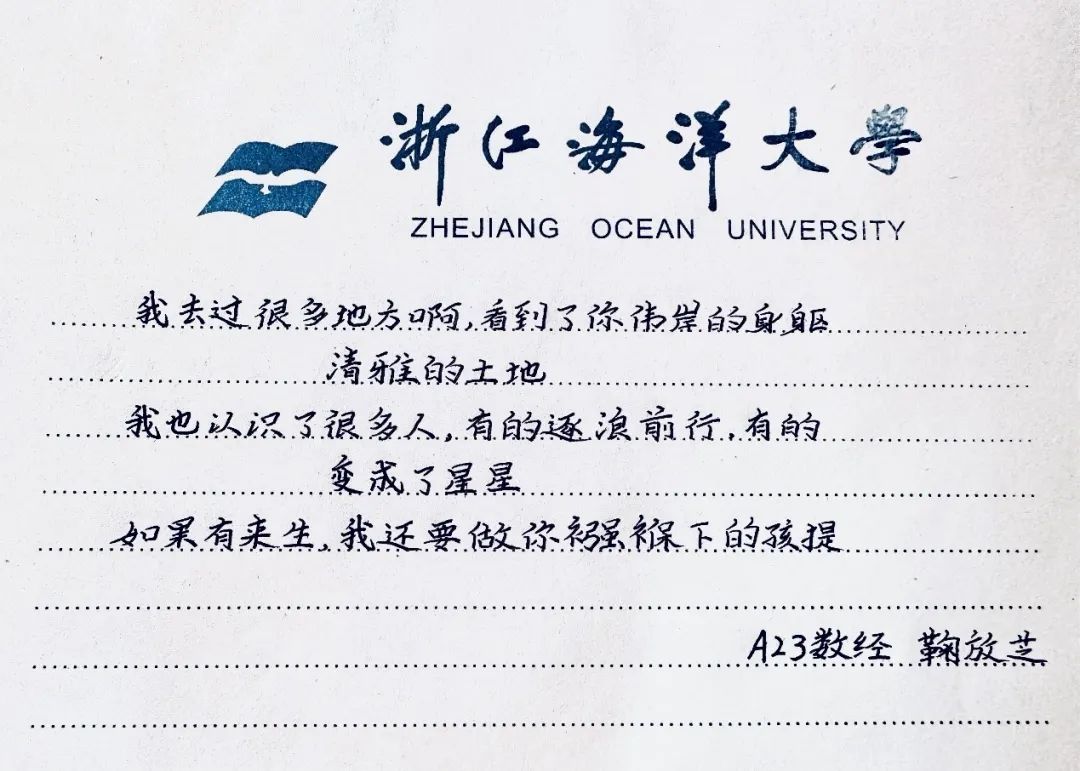 浙江海洋大學
ZHEJIANG OCEAN UNIVERSITY
我去过很多地方啊,看到了你伟岸的身躯
清雅的土地
我也认识了很多人,有的逐浪前行,有的
变成了星星
如果有来生,我还要做你襁褓下的孩提
A23数经 鞠放芝